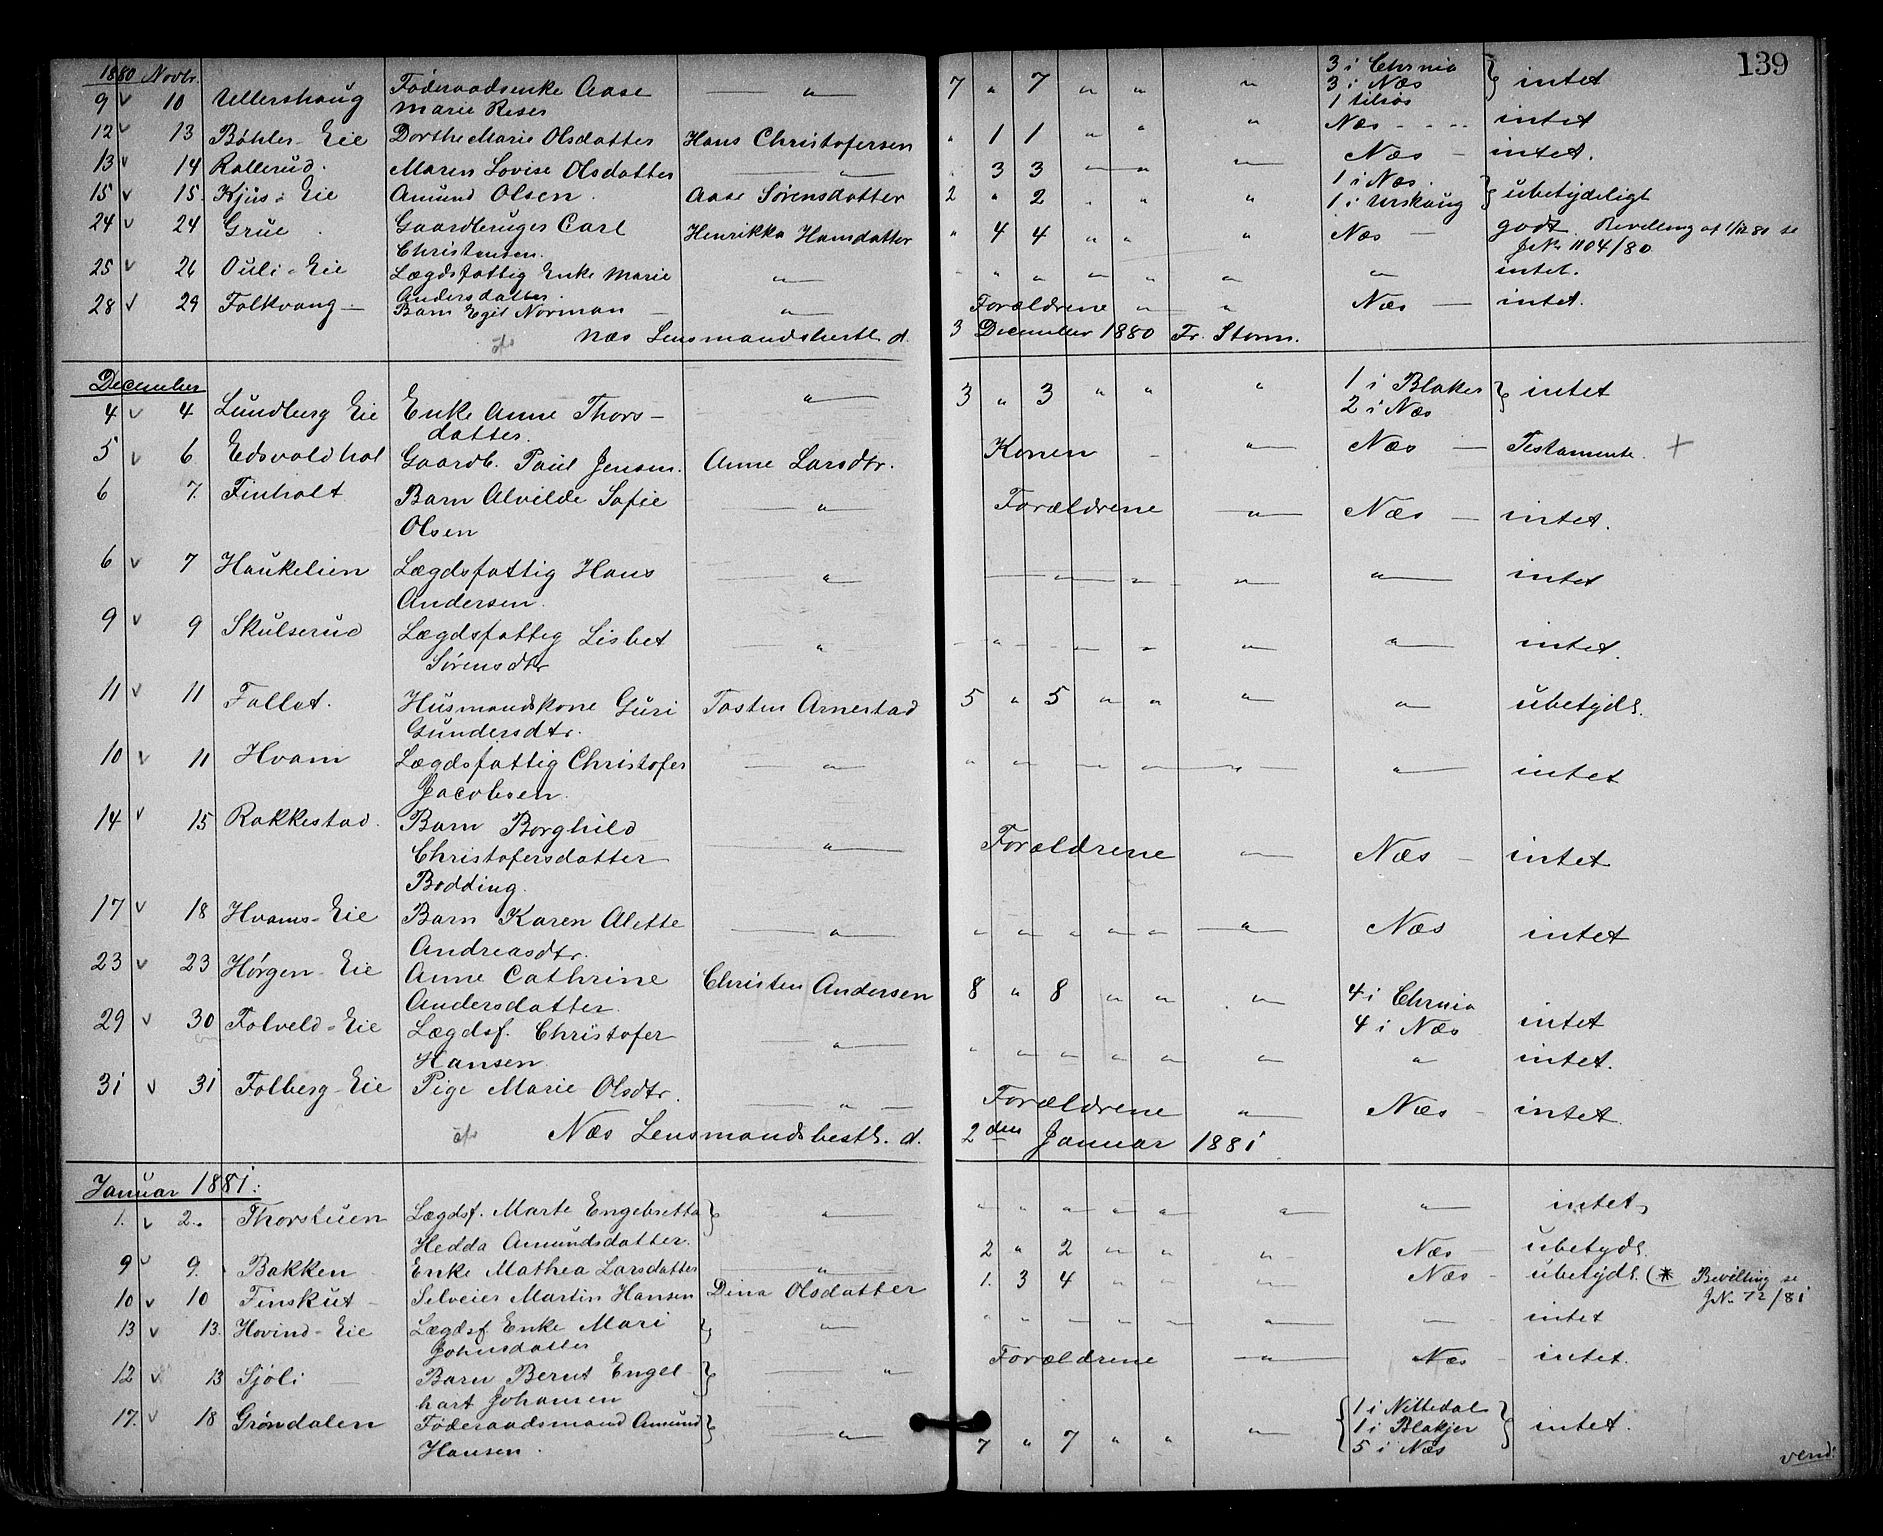 139
1880 Novbr.
9 10 Ullershaug Føderaadsenke Aase " 7 " 7 " " " 3 i Chrnia intet
Marie Reser 3 i Næs
1 tilsøs
12 13 Bøhler-Eie Dorthe Marie Olsdatter Hans Christofersen " 1 1 " " " Næs intet
13 14 Rallerud. Maren Lovise Olsdatter " " 3 3 " " " Næs intet.
15 15. Kjus-Eie Amund Olsen. Aase Sørensdatter 2 " 2 " " " 1 i Næs. ubetydeligt
1 i Urskaug
24 24 Grue Gaardbruger Carl Henrikka Hansdatter " 4 4 " " " Næs godt. Bevilling af 1/12 80 se
Christensen. J.N. 1104/80
25 26 Ouli-Eie Lægdsfattig Enke Marie " " " " " " " " intet.
Andersdatter.
28 29 Folkvang Barn Egil Norman " Forældrene " " Næs intet.
Næs Lensmandsbestl. d. 3 December 1880 Fr. Storm.
December
4 4 Lundberg Eie Enke Anne Thors- " 3 " 3 " " " 1 i Blaker intet
datter. 2 i Næs
5 6 Edsvoldhol Gaardb. Paul Jensen. Anne Larsdtr. Konen " Næs Testamente. +
6 7. Finholt Barn Alvilde Sofie " Forældrene " Næs intet.
Olsen
6 7 Haukelien Lægdsfattig Hans " " " " " intet
Andersen.
9 9 Skulserud Lægdsfattig Lisbet " " " " " " " intet.
Sørensdtr
11 11 Follet. Husmandskone Guri Tosten Arnestad 5 " 5 " " " " ubetydl.
Gundersdtr.
10 11 Hvam Lægdsfattig Christofer " " " " " " " intet
Jacobsen.
14 15 Rakkestad. Barn Borghild " Forældrene " Næs intet
Christofersdatter
Bodding.
17 18 Hvams-Eie Barn Karen Alette " " " " " " " Næs intet
Andreasdtr.
23 23 Hørgen-Eie Anne Cathrine Christen Andersen 8 " 8 " " " 4 i Chrnia intet
Andersdatter. 4 i Næs
29 30 Folveld-Eie Lægdsf. Christofer " " " " " " " " intet.
Hansen.
31 31 Folberg-Eie Pige Marie Olsdtr. " Forældrene " Næs intet.
Næs Lensmandsbestl. d. 2den Januar 1881
Januar 1881:
1. 2. Thorstuen Lægdsf. Marte Engebretta " " " " " " " " intet
Hedda Amundsdatter.
9 9. Bakken Enke Mathea Larsdatter " 2 " 2 " " " Næs ubetydl.
10 10 Finskut Selveier Martin Hansen Dina Olsdatter 1. 3 4 " " " Næs ubetydl. (* Bevilling se
J.N. 72/81
13 13. Hovind-Eie Lægdsf Enke Mari " " " " " " " " intet
Johnsdatter
12 13 Sjøli Barn Bernt Engel- " Forældrene " Næs intet.
hart Johansen
17. 18 Grøndalen Føderaadsmand Amund " 7 " 7 " " " 1 i Nittedal intet.
Hansen. 1 i Blakjer
5 i Næs
vend: